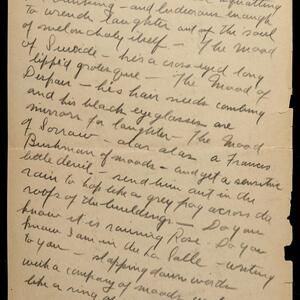 and ludicrous enough
to wrench laughter out of the soul
of melancholy itself — The Mood
of Suicide — he's a cross-eyed long
lipp'd grotesque — The Mood of
Despair — his hair needs combing
and his black eyeglasses are
mirrors for laughter — The Mood
of Sorrow — alas alas a Francis
Bushman of moods — and yet a sensitive
little devil — send him out in the
rain to hop like a grey frog across the
roofs of the buildings — Do you
know it is raining Rose. Do you
know I am in the La Salle — writing
to you — slapping down words
with a company of moods
like a ring of